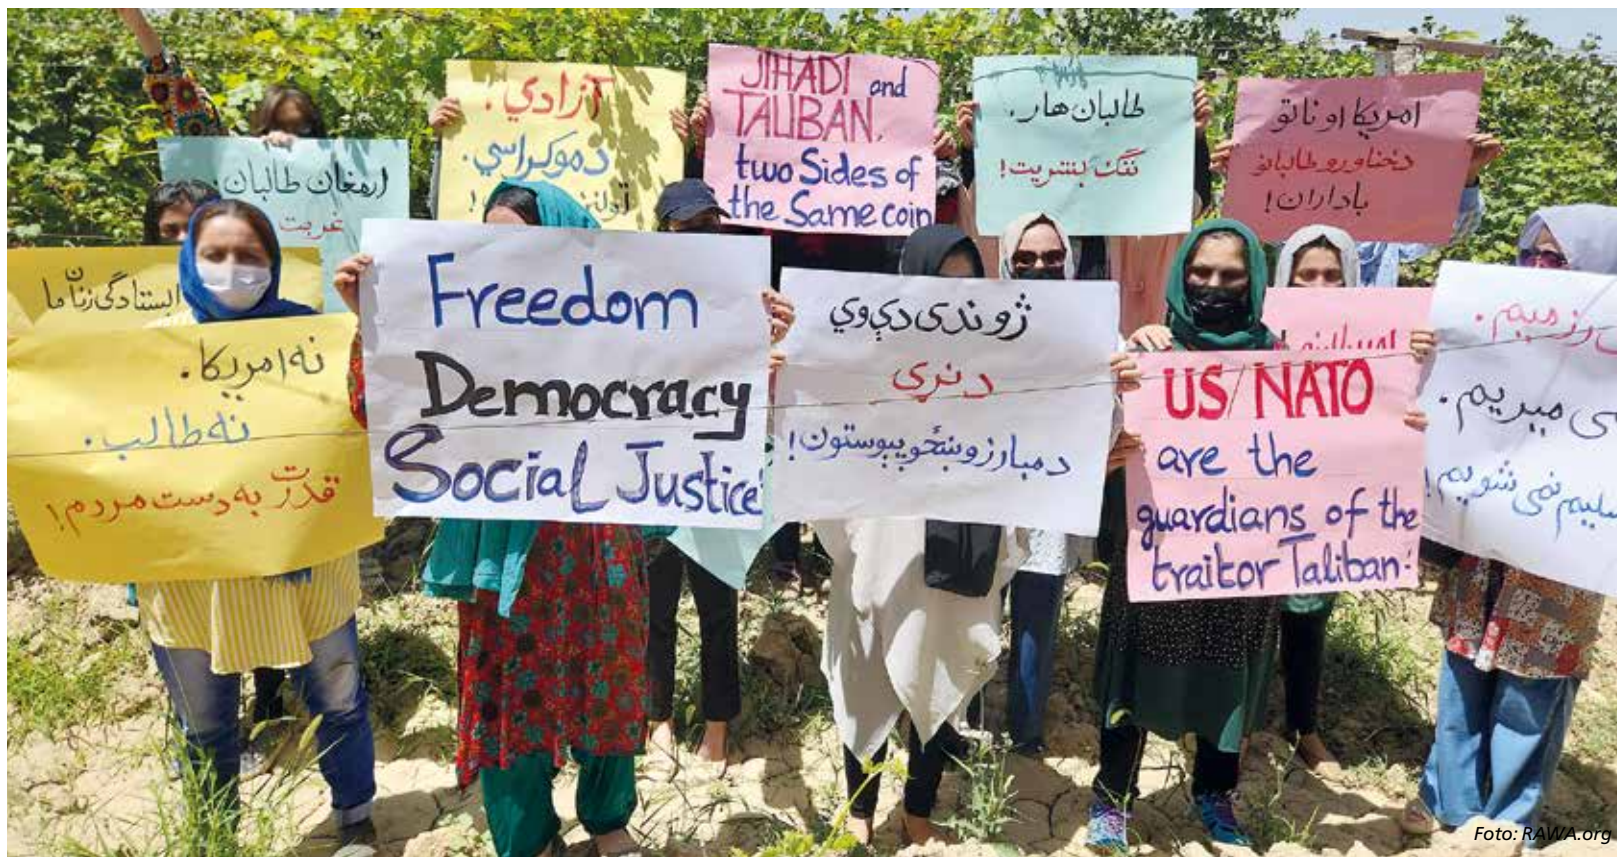 ارمغان طالبان
غربت
آزادي.
دموکراسي.
JIHADI and
TALIBAN,
two Sides of
the Same coin
طالبان هار،
ننگ بشریت!
امریکا او ناتو
د خناورو طالبانو
باداران!
ایستادگی زنان ما
نه امریکا.
نه طالب.
قدرت به دست مردم!
Freedom
Democracy
Social Justice
ژوندی دې وي
د نړۍ
د مبارزو ښځو پیوستون!
US/NATO
are the
guardians of the
traitor Taliban!
رزمیم.
می میریم.
نمی شویم!
Foto: RAWA.org